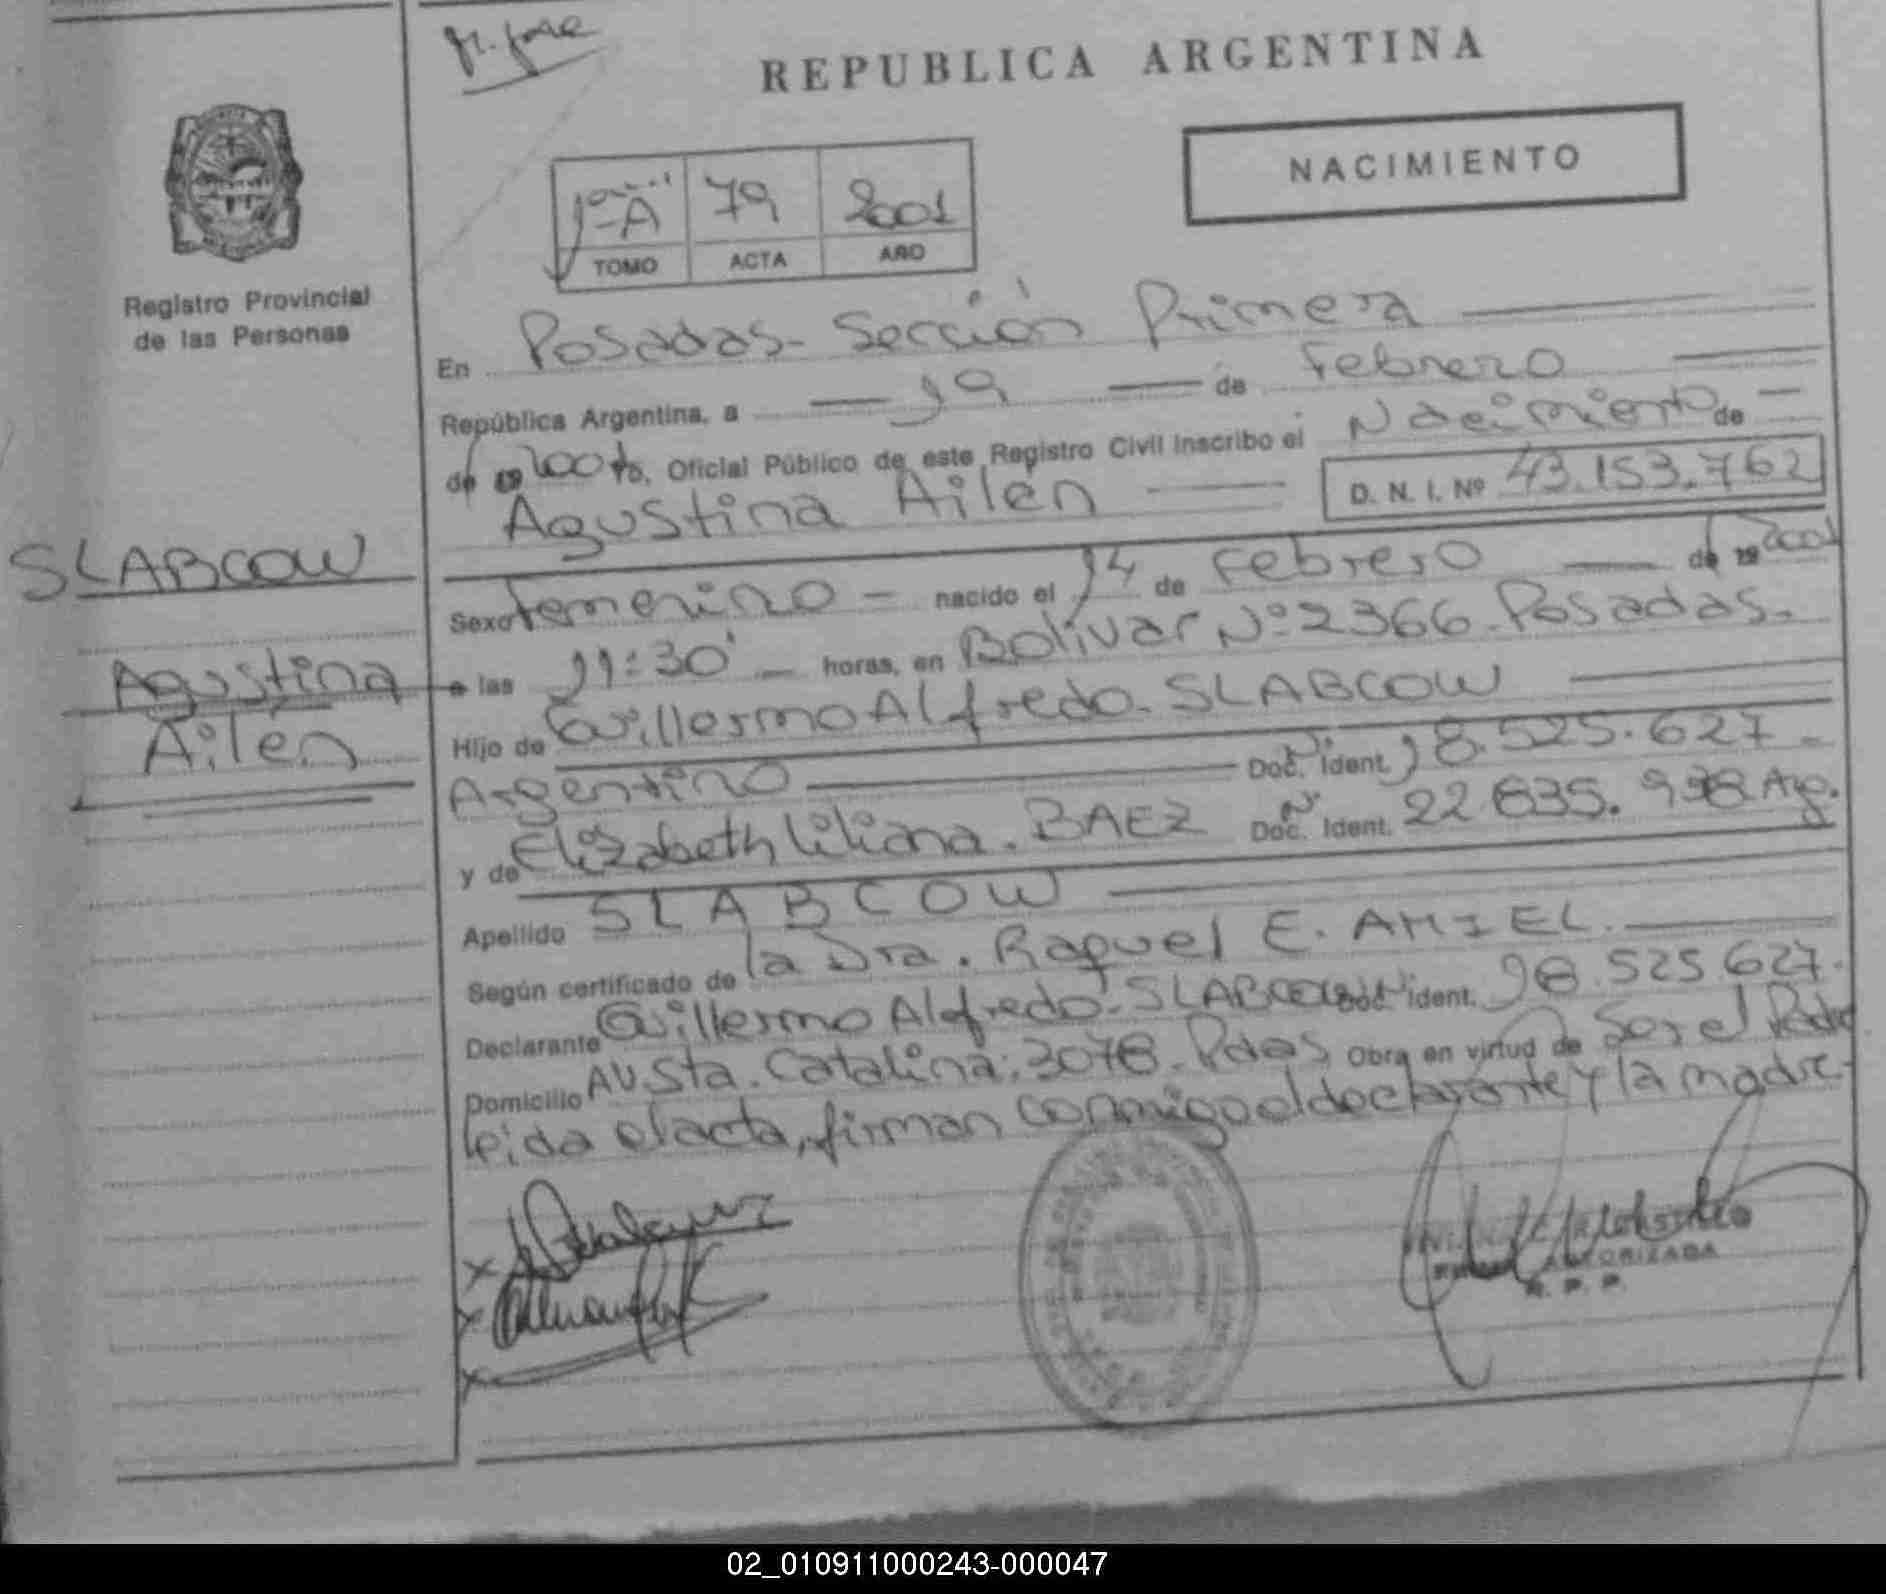 REPUBLICA ARGENTINA
NACIMIENTO
1º A 79 2001
TOMO ACTA AÑO
Registro Provincial
de las Personas
En Posadas - Sección Primera
República Argentina, a 19 de Febrero
de 2001 yo, Oficial Público de este Registro Civil inscribo el Nacimiento de
Agustina Ailén D. N. I. Nº 43.153.762
SLABCOW
Agustina
Ailén
Sexo femenino - nacido el 14 de Febrero de 2001
a las 11:30' - horas, en Bolivar Nº 2366 - Posadas.
Hijo de Guillermo Alfredo. SLABCOW
Argentino Doc. Ident. 18.525.627 -
y de Elizabeth Liliana. BAEZ Doc. Ident. 22.835. Arg.
Apellido SLABCOW
Según certificado de la Dra. Raquel E. AMIEL.
Declarante Guillermo Alfredo. SLABCOW Doc. Ident. 18.525.627.
Domicilio AV Sta. Catalina: 3078 - Pdas Obra en virtud de Ser el Padre
leida el acta, firman conmigo el declarante y la madre -
AUTORIZADA
R. P. P.
02_010911000243-000047